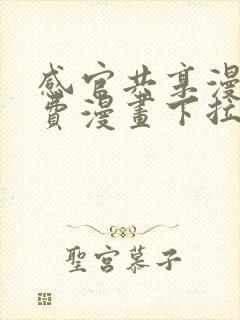 感官共享漫
費漫畫下拉
聖宮慕子